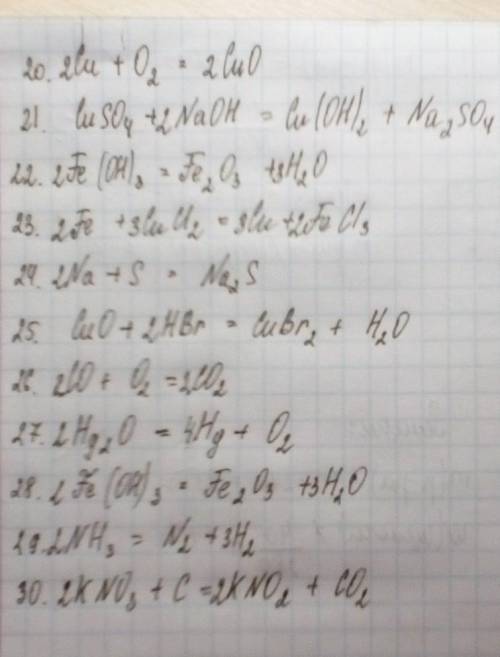 20. 2Cu + O₂ = 2CuO
21. CuSO₄ + 2NaOH = Cu(OH)₂ + Na₂SO₄
22. 2Fe(OH)₃ = Fe₂O₃ + 3H₂O
23. 2Fe + 3CuCl₂ = 3Cu + 2FeCl₃
24. 2Na + S = Na₂S
25. CuO + 2HBr = CuBr₂ + H₂O
26. 2CO + O₂ = 2CO₂
27. 2Hg₂O = 4Hg + O₂
28. 2Fe(OH)₃ = Fe₂O₃ + 3H₂O
29. 2NH₃ = N₂ + 3H₂
30. 2KNO₃ + C = 2KNO₂ + CO₂